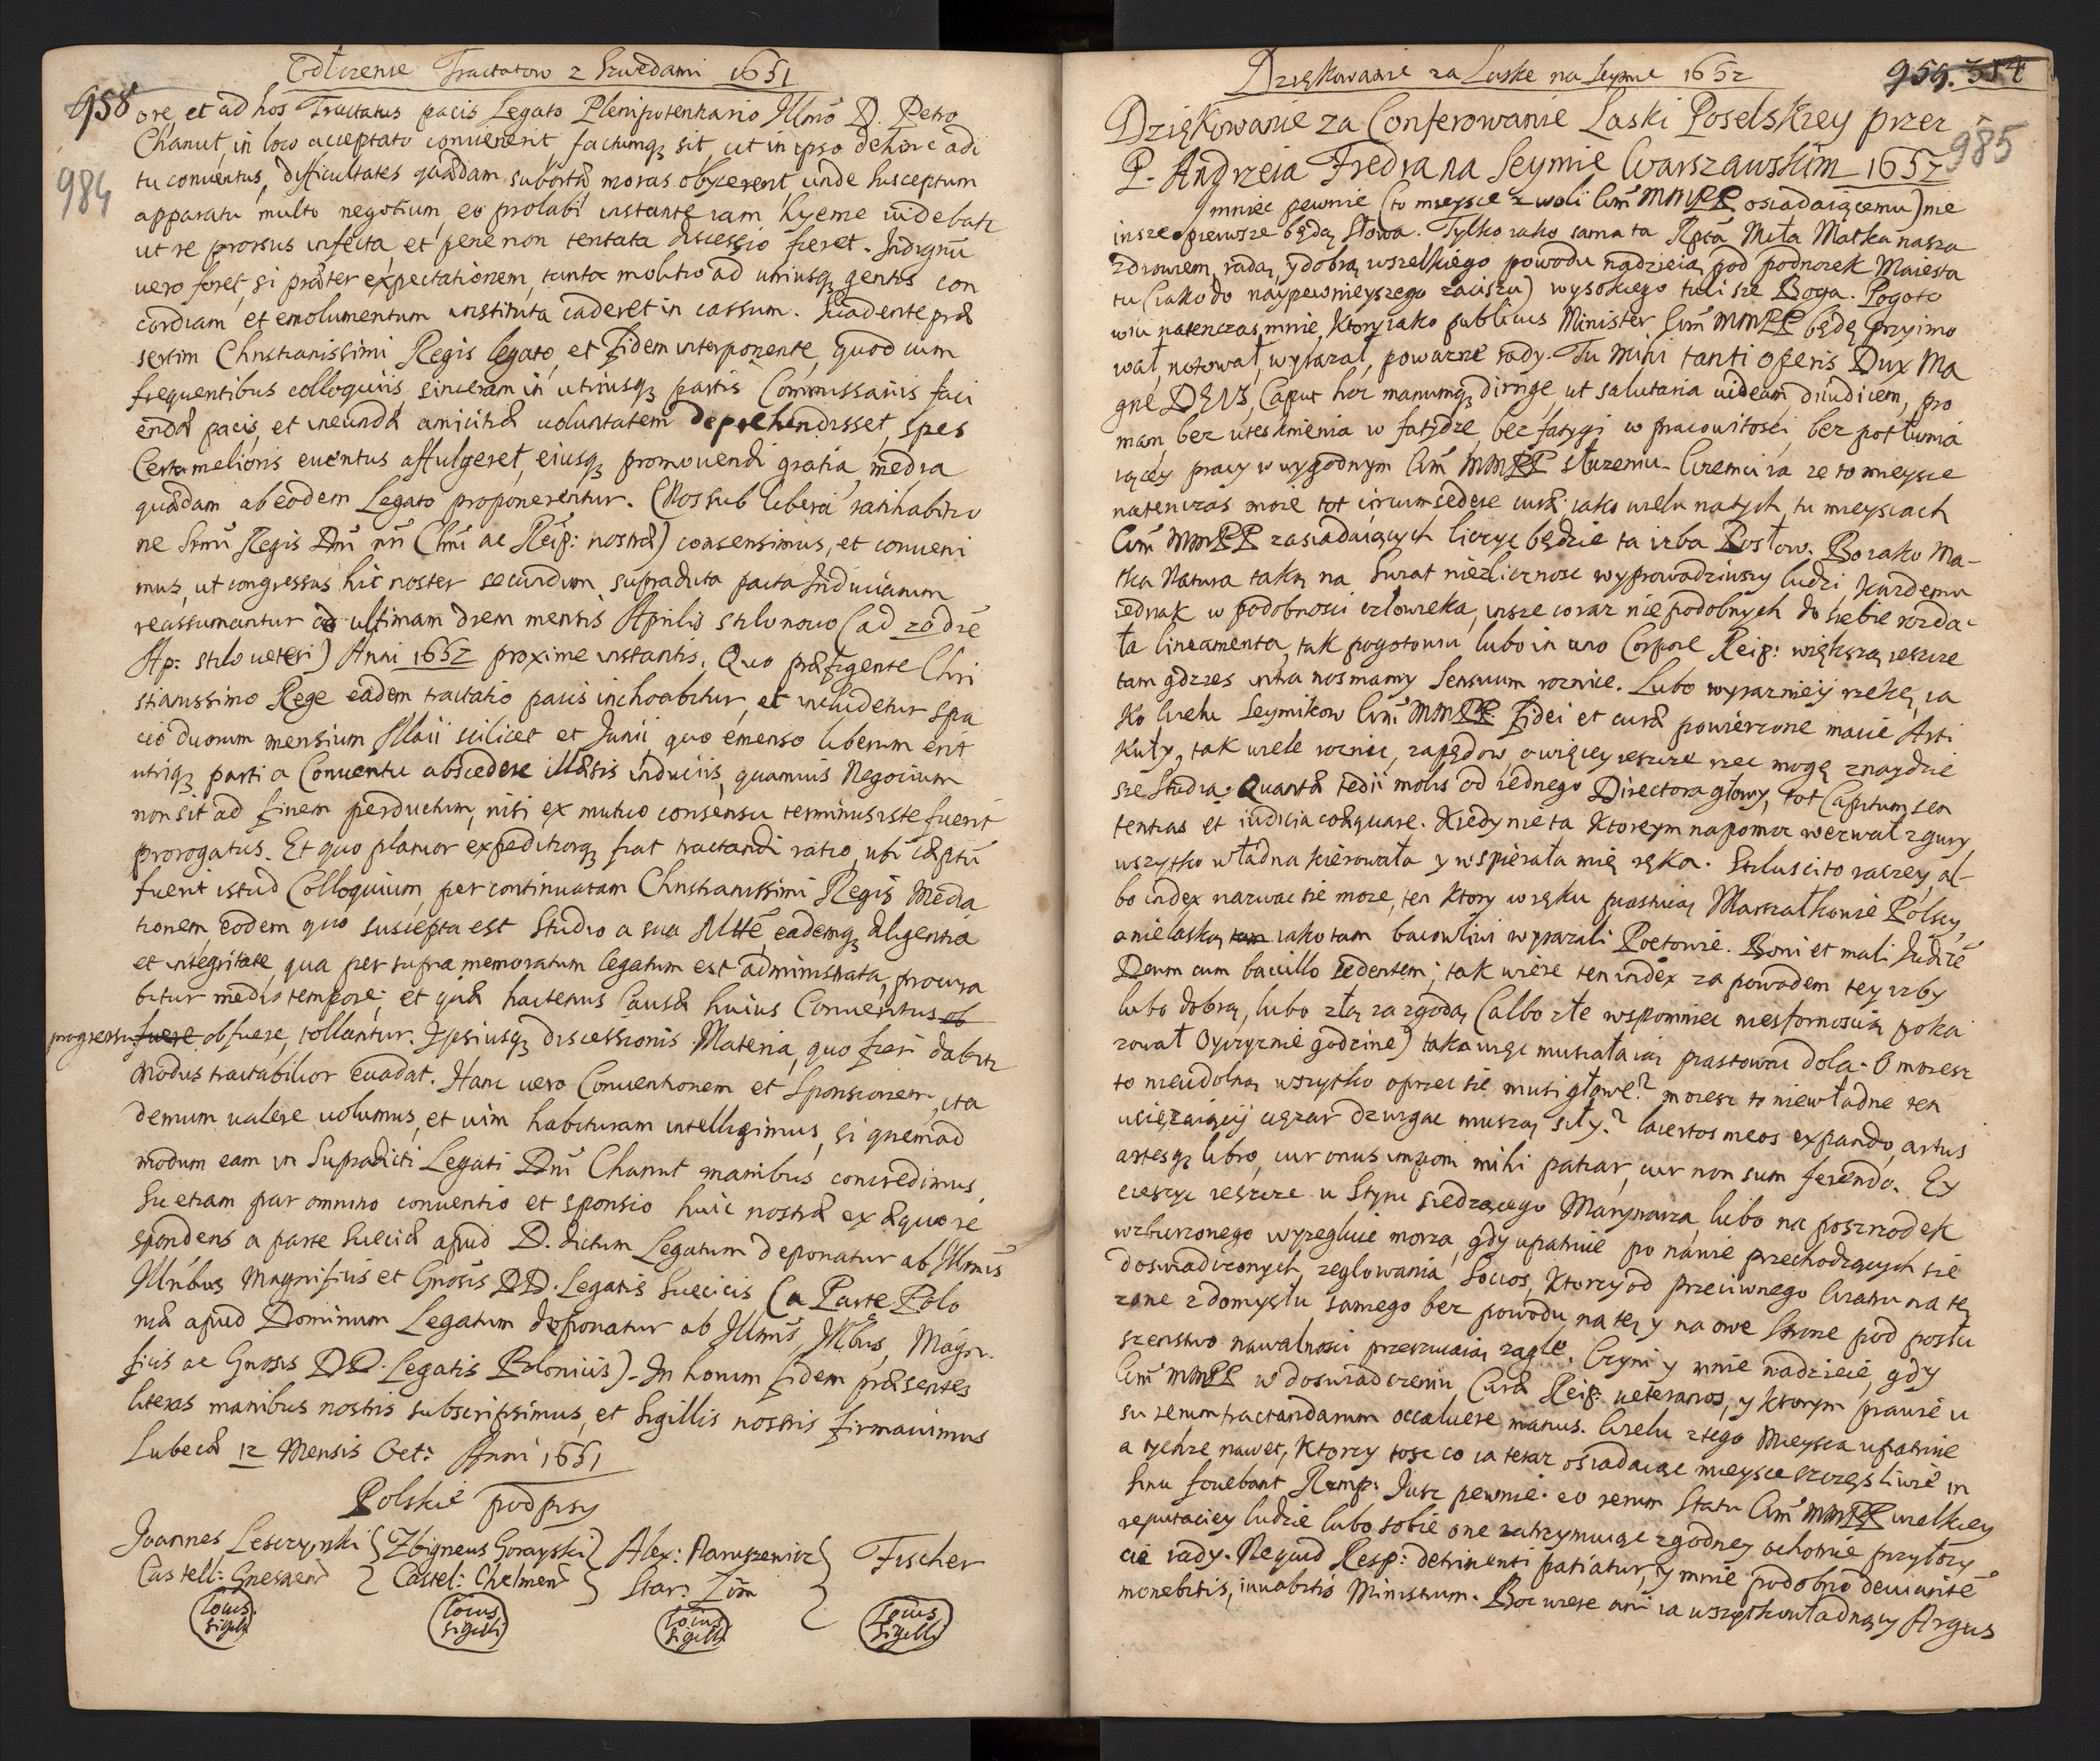 Odłozenie Tractatow z Szwedami 1651
958
984
ore, et ad hos Tractatus pacis Legato Plenipotentiario Illmo D. Petro
Chanut, in loco acceptato convenerit, factumq; sit, ut in ipso dehinc adi
tu conventus, difficultates quædam subortæ moras obijcerent, unde susceptum
apparatu multo negotium, eo prolabi instante iam hyeme videbatr
ut re prorsus infecta, et pene non tentata discessio fieret. Indignũ
vero foret, si præter expectationem, tanta molitio ad utriusq; gentis con
cordiam et emolumentum instituta caderet in cassum. Suadente præ
sertim Christianissimi Regis legato, et fidem interponente, quod cum
frequentibus colloquiis, sinceram in utriusq; partis Commissariis faci
endæ pacis, et ineundæ amicitiæ voluntatem deprehendisset, spes
Certa melioris eventus affulgeret, eiusq; promovendi gratia, media
quædam ab eodem Legato proponerentur. (Nos sub libera ratihabitio
ne Srmi Regis Dni nri Clmi ac Reip: nostræ) consensimus, et conveni
mus, ut congressus hic noster secundum supradicta pacta Induciarum
reassumantur ad ultimam diem mensis Aprilis stilo novo (ad 20 diẽ
Ap: stilo veteri) Anni 1652 proxime instantis. Quo præfigente Chri
stianissimo Rege eadem tractatio pacis inchoabitur, et includetur spa
cio duorum mensium Maii scilicet et Junii, quo emenso liberum erit
utriq; parti a Conventu abscedere illæsis induciis, quamvis Negocium
non sit ad finem perductum, nisi ex mutuo consensu terminus iste fuerit
prorogatus. Et quo planior expeditiorq; fiat tractandi ratio, ubi cæptũ
fuerit istud Colloquium, per continuatam Christianissimi Regis Media
tionem, eodem quo suscepta est studio a sua Mtte, eademq; diligentia
et integritate, qua per supra memoratum legatum est administrata, procura
bitur medio tempore; et quæ hactenus Causæ huius Conventus ob
progressu fuere obfuere, tollantur. Ipsiusq; discessionis Materia, quo fieri dabitr
modus tractabilior evadat. Hanc vero Conventionem et Sponsionem, ita
demum valere volumus, et vim habituram intelligimus, si quemad
modum eam in Supradicti Legati Dni Chanut manibus concredimus,
Sic etiam par omnino conventio et sponsio huic nostræ ex æquo re
spondens a parte Sueciæ apud D. dictum Legatum deponatur ab Illmis
Illribus Magnificis et Gnosis DD. Legatis Suecicis (a Parte Polo
niæ apud Dominum Legatum deponatur ab Illmis, Illbus, Magni
ficis ac Gnosis DD. Legatis Polonicis). In horum fidem præsentes
literas manibus nostris subscripsimus, et Sigillis nostris firmavimus
Lubecæ 12 Mensis Oct: Anni 1651
Polskie podpisy
Joannes Lesczynski Zbigneus Gorayski Alex: Naruszewicz Fischer
Castell: Gnesnen Castel: Chelmen Star:
Locus Sigilli Locus Sigilli Locus Sigilli Locus Sigilli
Dziękowanie za Laske na Seymie 1652
959. 354
985
Dziękowanie za Conferowanie Laski Poselskiey przez
P. Andrzeia Fredra na Seymie Warszawskim 1652
mniec pewnie (to mieysce z woli Wm MMPP osiadaiącemu) nie
insze pierwsze będą słowa. Tylko iako sama ta Rpta Miła Matka nasza
zdrowiem, radą, y dobrą wszelkiego powodu nadzieią, pod podnozek Maiesta
tu (iako do naypewnieyszego zaciszu) wysokiego tuli sie Boga. Pogoto
wiu natenczas mnie, ktory iako publicus Minister Wm MMPP będę przyimo
wał, notował, wyrazał, powazne rady. Tu mihi tanti operis Dux Ma
gne DEUS, Caput hoc manumq; dirige, ut salutaria videam, diiudicem, pro
mam bez utesknienia w fatydze, bez fatygi w pracowitosci, bez potłumia
iącey pracy w wygodnym Wm MMPP słuzeniu. Wiem ci ia ze to mieysce
natenczas moie tot circumsedere curæ iako wielu na tych tu mieyscach
Wm MMPP zasiadaiących liczyc będzie ta izba Posłow. Bo iako Ma-
tka Natura taką na Swiat niezlicznosc wyprowadziwszy ludzi, kazdemu
iednak w podobnosci człowieka, insze coraz nie podobnych do siebie rozda-
ła lineamenta, tak pogotowiu lubo in uno Corpore Reip: większą ieszcze
tam gdzies intra nos mamy Sensuum roznice. Lubo wyrazniey rzekę, ia
ko Wielu Seymikow Wm MMPP fidei et curæ powierzone macie Arti
kuły, tak wiele roznic, zapędow, a więcey ieszcze rzec mogę znaydzie
sie Studia. Quanta tedii molis od iednego Directora głowy, tot Capitum sen
tentias et iudicia coæquare. Kiedy nie ta ktoreym na pomoc wezwał z gury
wszytko władna kierowała y wspierała mię ręka. Stilus ci to raczey, al-
bo index nazwac sie moze, ten ktory w ręku piastuią Marszałkowie Polscy,
a nie laską tam iako tam baculum wyrazali Poetowie. Boni et mali Iudicẽ
Deum cum bacillo sedentem; tak wiere ten index za powodem tey izby
lubo dobrą, lubo złą za zgodą (albo złe wspomniec niesfornoscią poka
zował Oyczyznie godzine) taka wszc musiała ią piastowac dola. O mozesz
to nieudolną wszytko oprzec sie musi głowe? mozesz to niewładne ten
uciązaiącij cięzar dzwigac muszą siły? lacertos meos expando, artus
artesq; libro, cur onus imponi mihi patiar, cur non sum ferendo. Ey
cieszyc ieszcze u Styru siedzącego Marynarza, lubo na poszrodek
wzburzonego wyzegluie morza, gdy upatruie po nawie przechodzących sie
doswiadczonych zeglowania Socios, ktorzy od przeciwnego Wiatru na tę
zone z domysłu samego bez powodu, na tę y na owe Strone pod posłu
szenstwo nawalnosci przerzucaią zagle. Czyni y mnie nadzieie, gdy
Wm MMPP w doswiadczeniu Curæ Reip: veteranos, y ktorym prawie u
su rerum tractandarum occaluere manus. Wielu z tego Mieysca upatruie
a tychze nawet, ktorzy tosz co ia teraz osiadaiąc mieysce szczęsliwie in
sinu fovebant Remp: Jusz pewnie eo rerum Statu Wm MMPP wielkiey
reputaciey ludzie lubo sobie one zatrzymuiąc zgodney ochotnie przyłozy
cie rady. Nequid Resp: detrimenti patiatur, y mnie podobno deviantẽ
monebitis, iuvabitis Ministrum. Boc wiere ani ia wszytkowładnący Argus